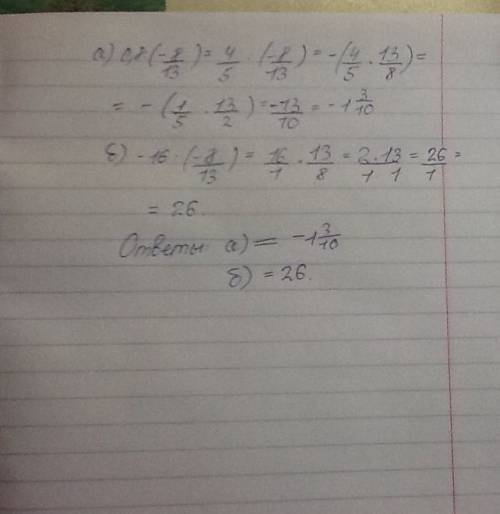 а) 0,8 (-8/13) = 4/5 · (-8/13) = -(4/5 · 13/8) =
= -(1/5 · 13/2) = -13/10 = -1 3/10
б) -16 · (-8/13) = 16/1 · 13/8 = 2·13/1 1 = 26/1 =
= 26.
Ответы: а) = -1 3/10
б) = 26.